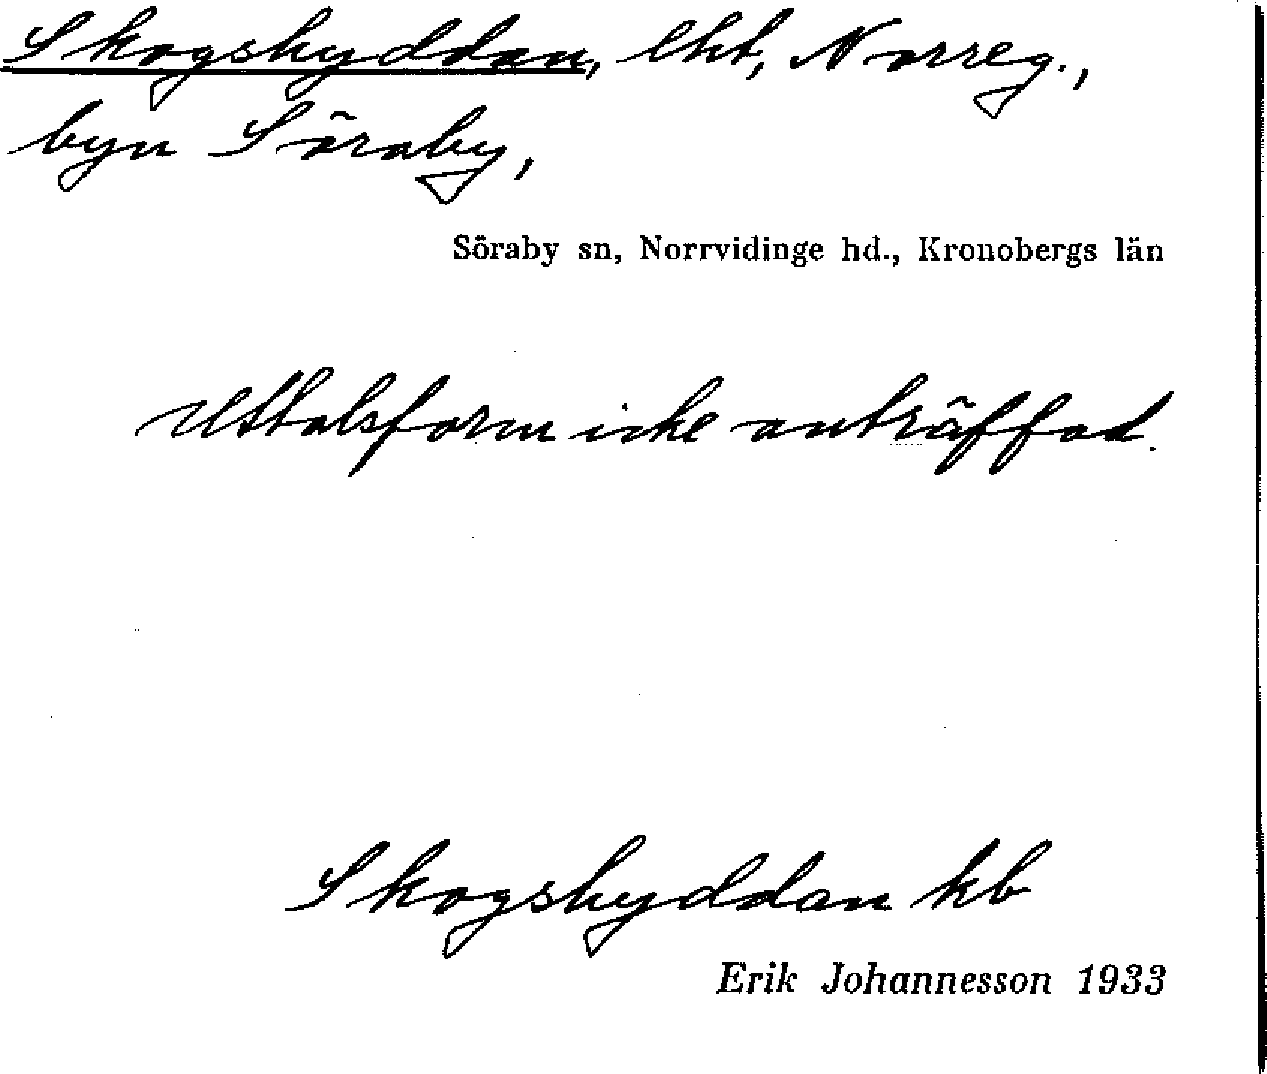 Skogshyddan, lht, Norreg.,
byn Söraby,
Söraby sn, Norrvidinge hd., Kronobergs län
Uttalsform icke anträffad.
Skogshyddan kb
Erik Johannesson 1933